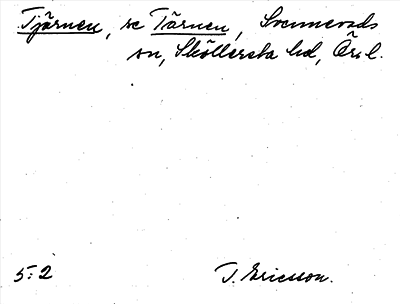 Tjärnen, se Tärnen, Svennevads
sn, Sköllersta hd, Ör. l.
5:2 J. Ericsson.